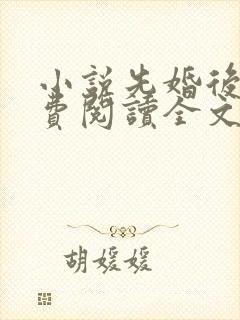 小說先婚後
費閱讀全文
胡媛媛